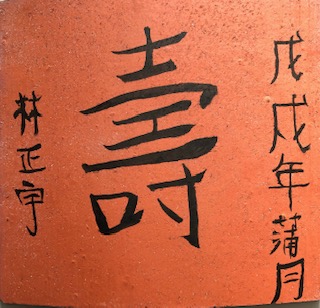 戊戌年蒲月
壽
林正宇